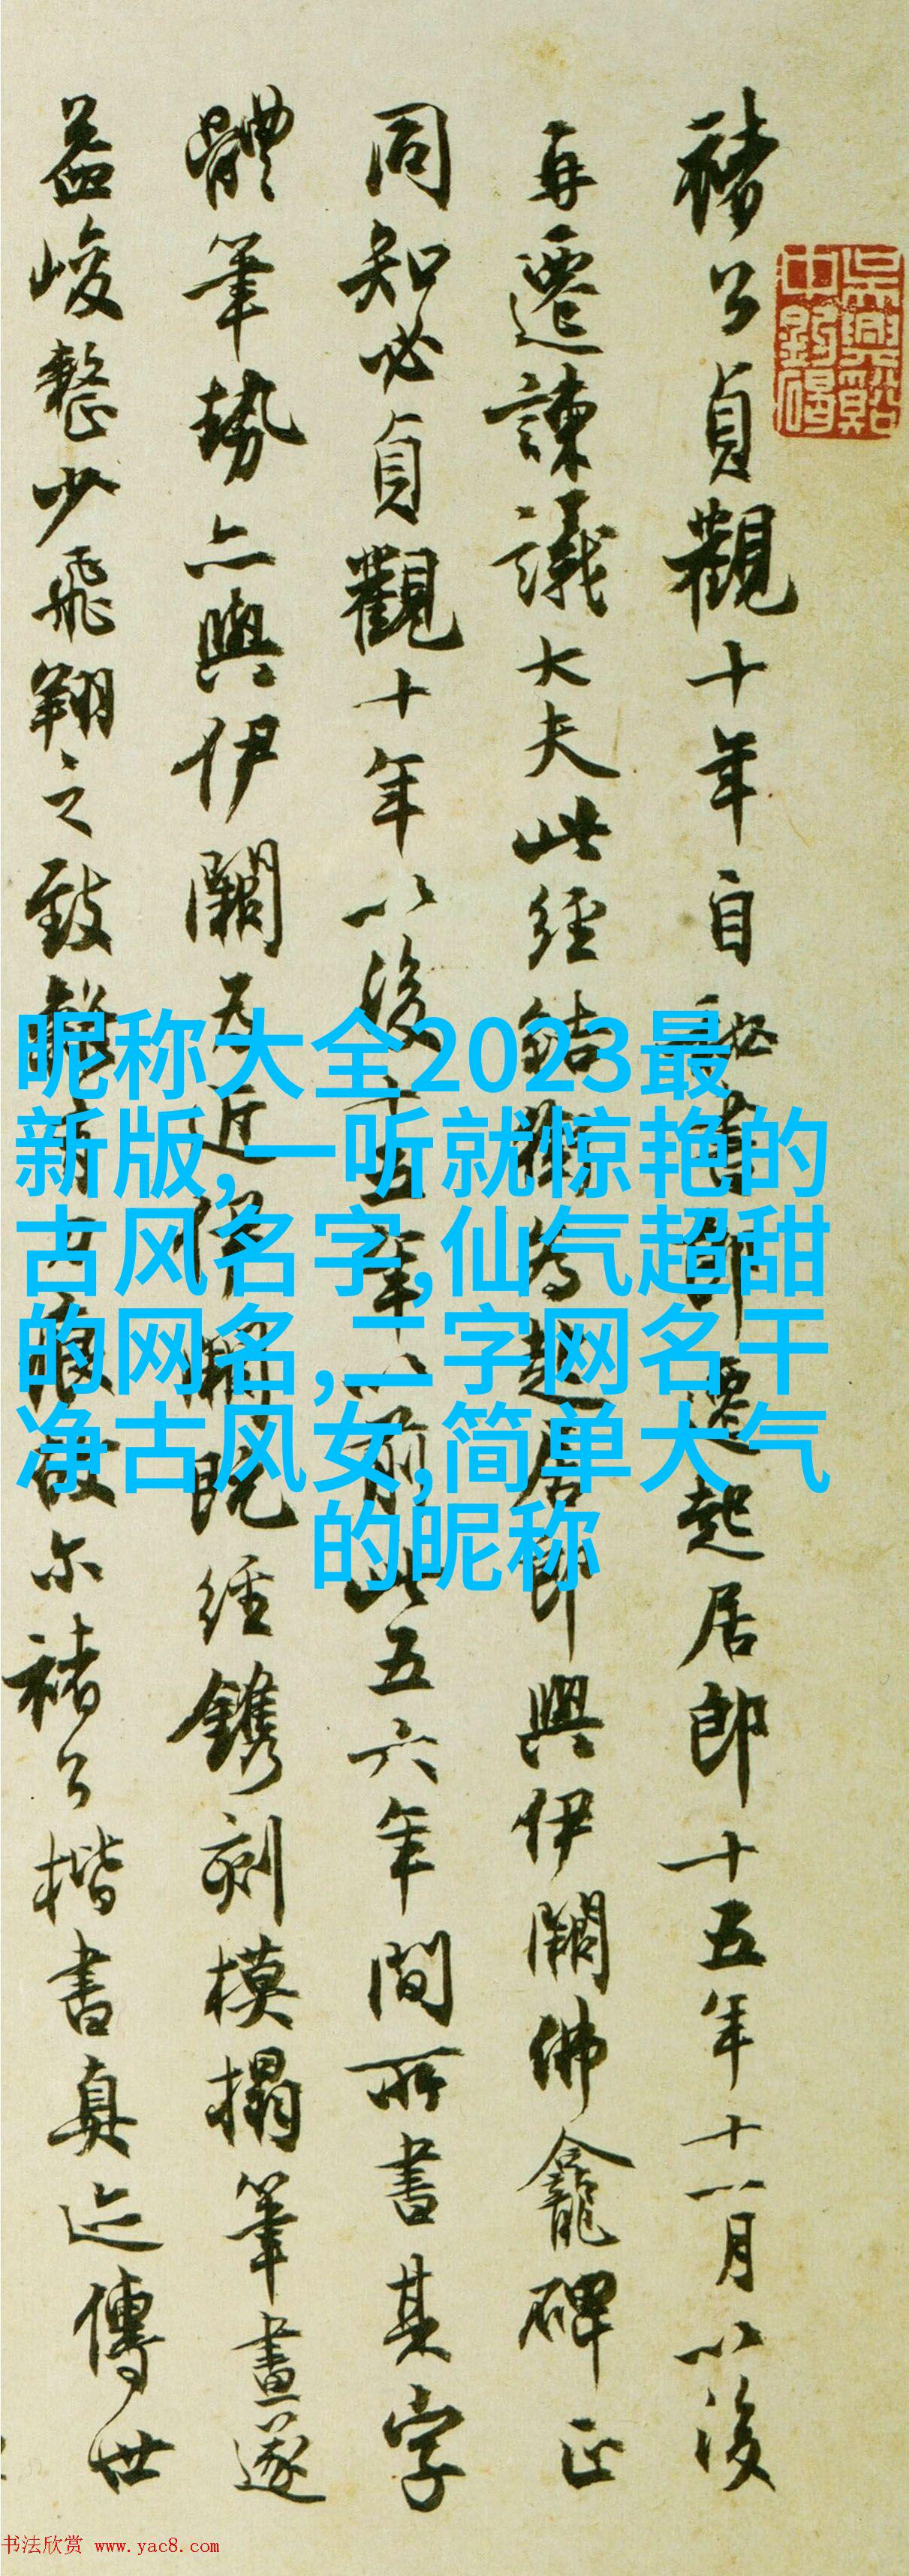 褚公貞觀十年自祕書郎遷起居郎十五年十一月以後
再遷諫議大夫此經結銜為起居郎與伊闕佛龕碑正
同知必貞觀十年以後十五年以前此五六年間所書其字
體筆勢亦與伊闕為近伊闕既經鐫刻模搨筆畫遂
益峻整少飛翔之致痕故尔褚公楷書真迹傳世
昵称大全2023最
新版,一听就惊艳的
古风名字,仙气超甜
的网名,二字网名干
净古风女,简单大气
的昵称
书法欣赏 www.yac8.com